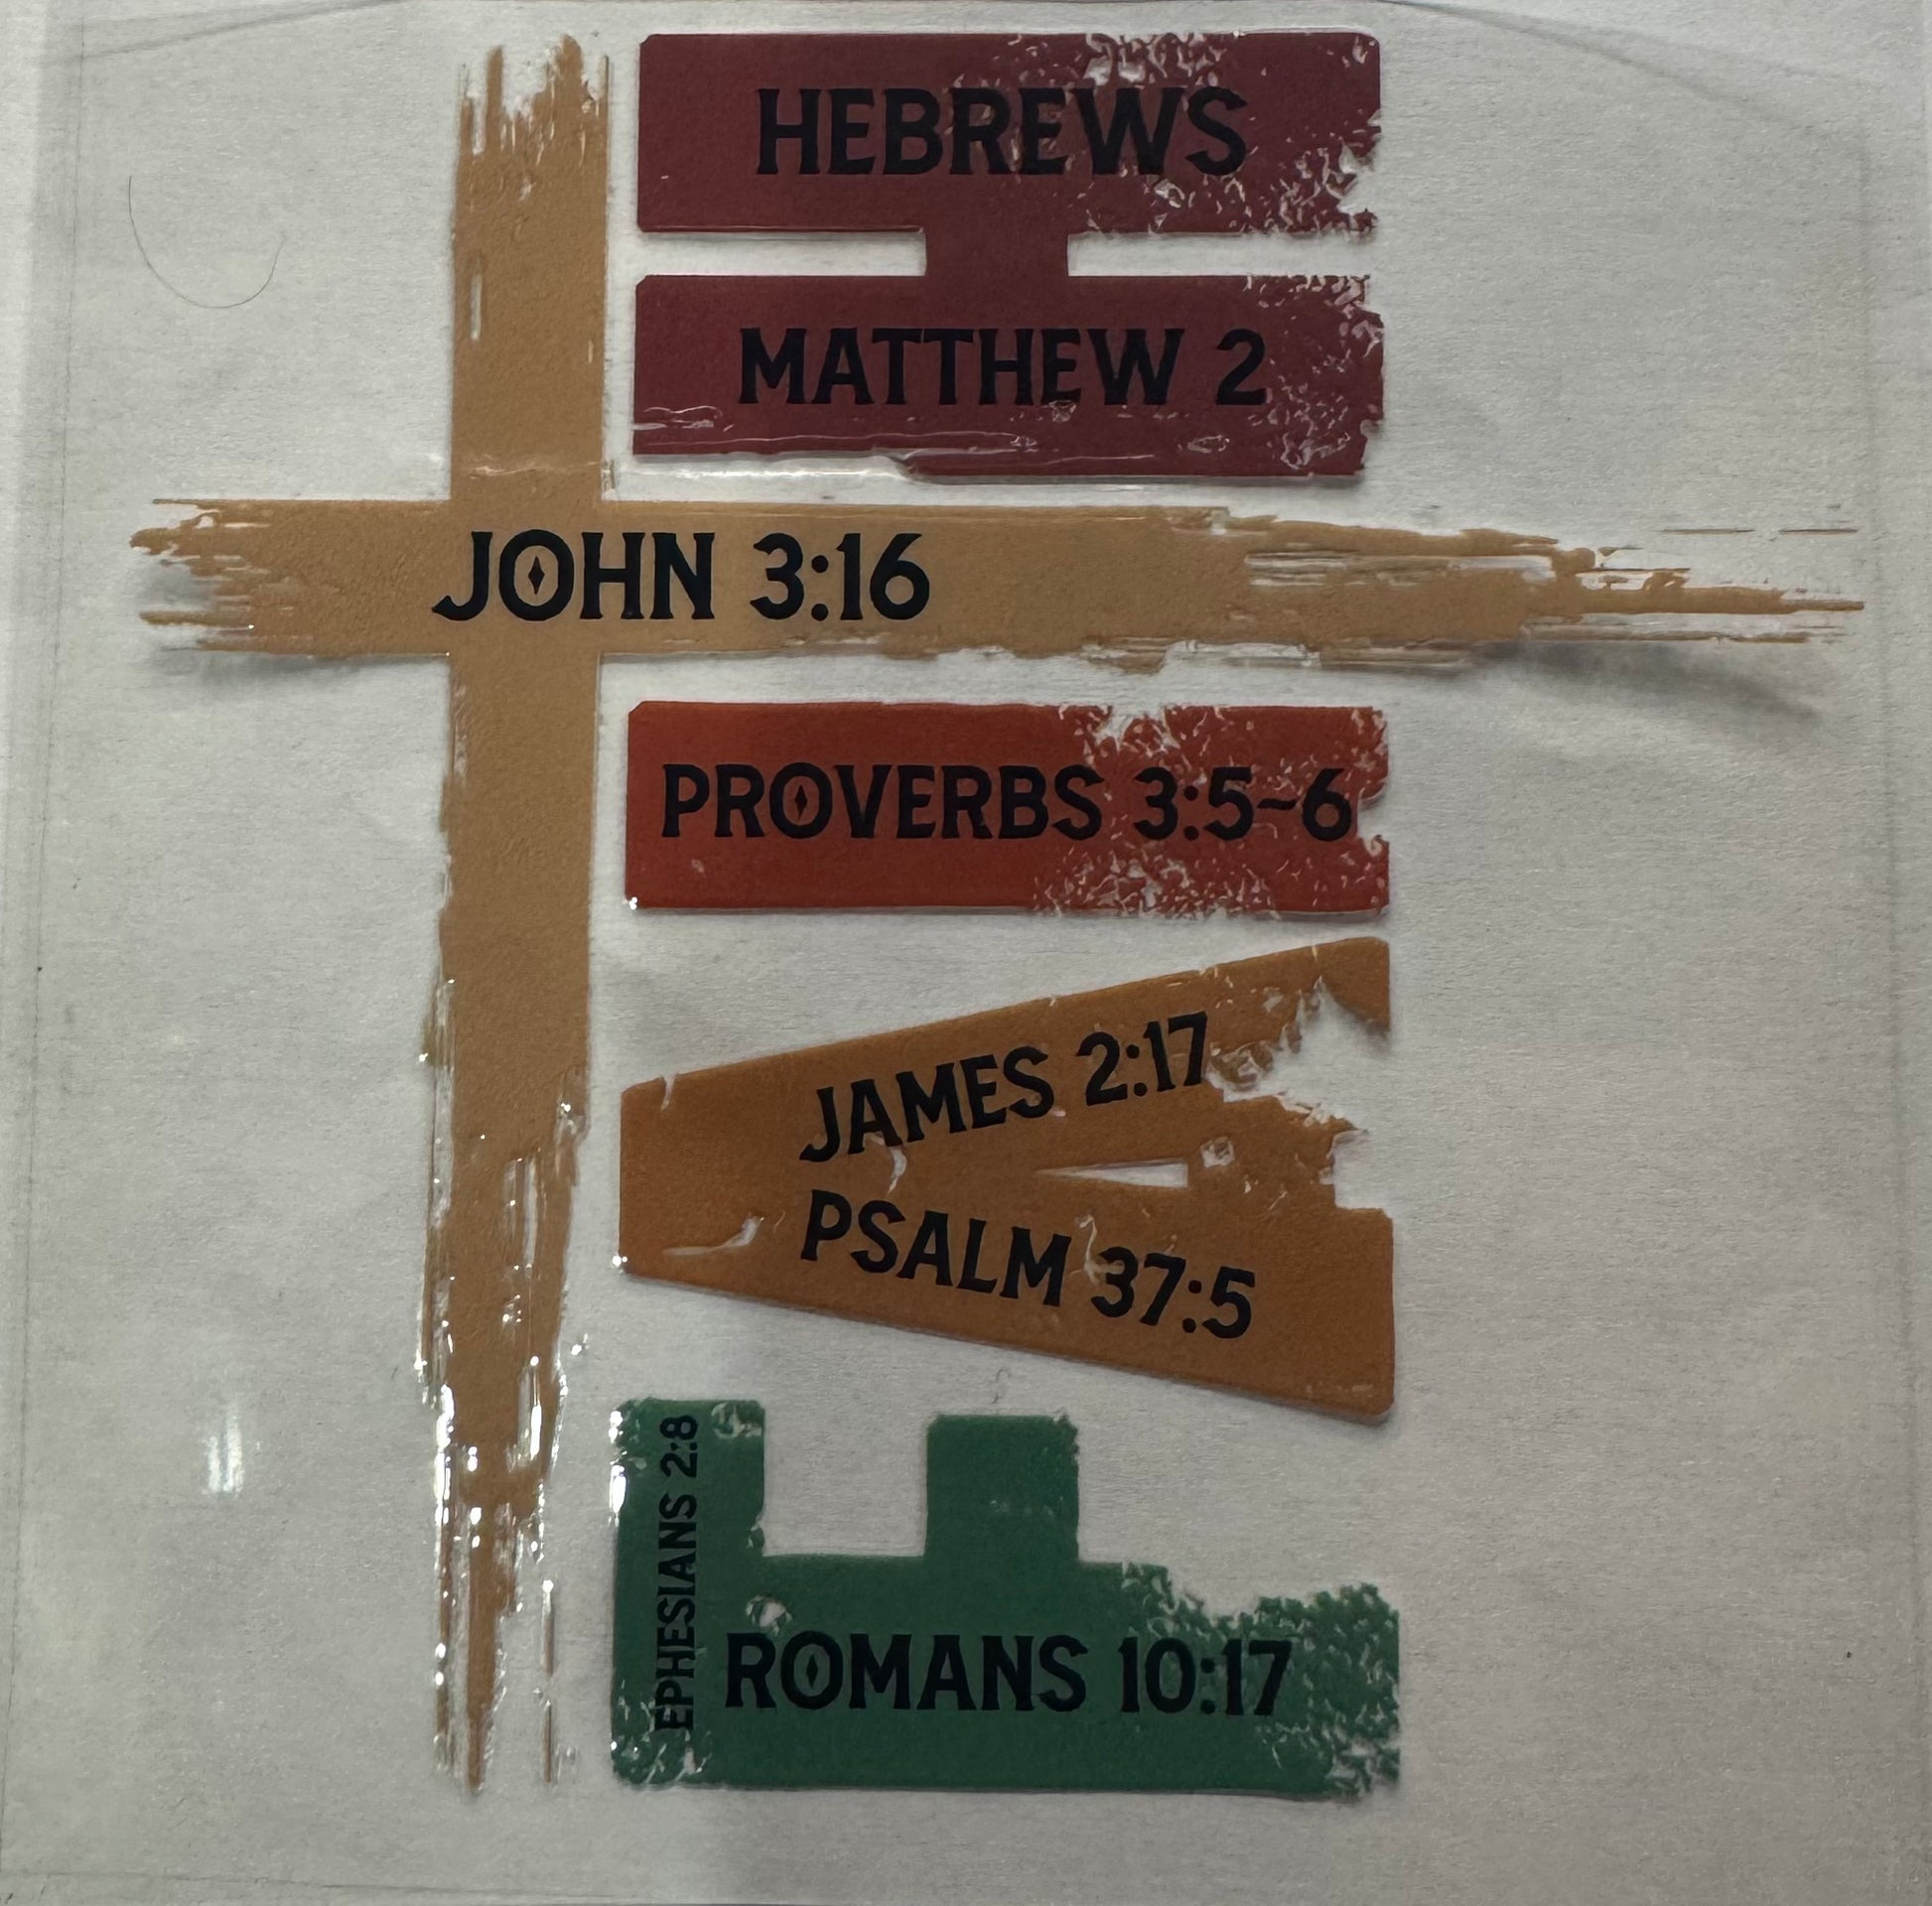 HEBREWS
MATTHEW 2
JOHN 3:16
PROVERBS 3:5~6
JAMES 2:17
PSALM 37:5
EPHESIANS 2:8
ROMANS 10:17